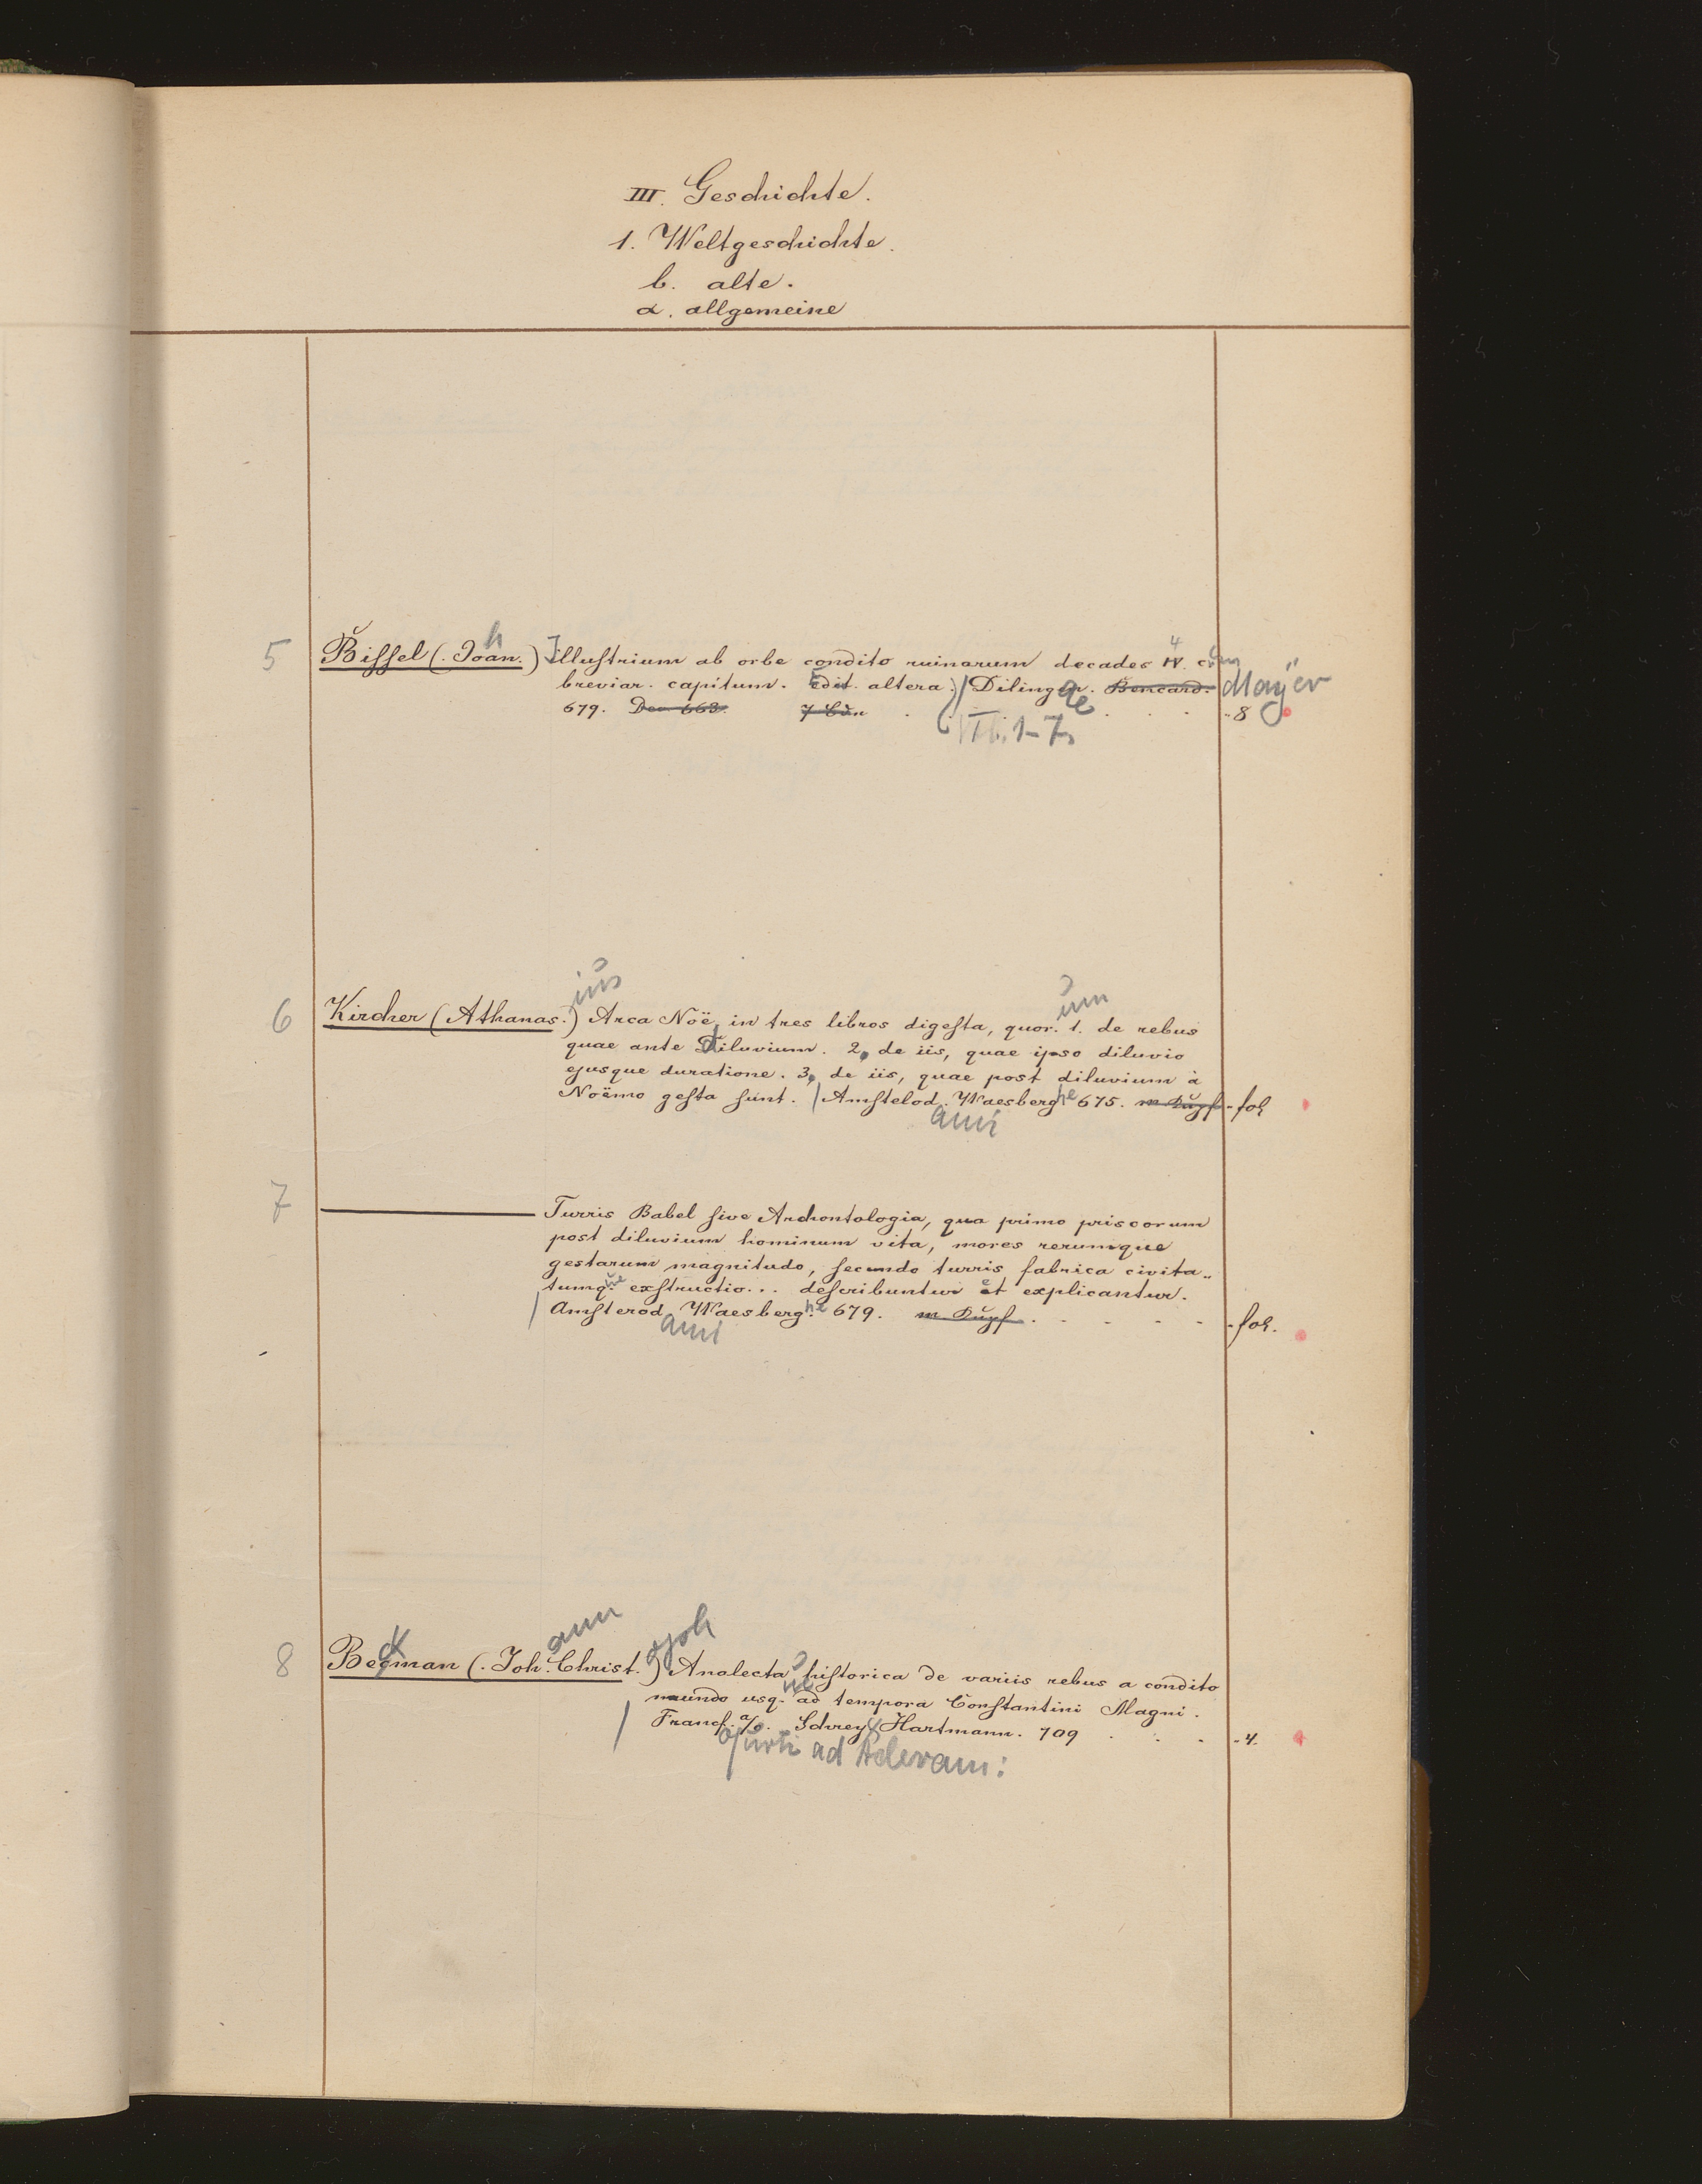 III. Geschichte.
1. Weltgeschichte.
b. alte.
α. allgemeine
5 Bissel (. Joan.) Illustrium ab orbe condito ruinarum decades IV. cum
breviar. capitum. Edit. altera.) / Dilingae. Bencard. Mayer
679. 7 Bde. 8
T. 1-7.
ius um
6 Kircher (Athanas.) Arca Noë, in tres libros digesta, quor. 1. de rebus
quae ante diluvium. 2, de iis, quae ipso diluvio
ejusque duratione. 3, de iis, quae post diluvium à
Noëmo gesta sunt. / Amstelod. Waesberghe 675. fol
ami
7 ——— Turris Babel sive Archontologia, qua primo priscorum
post diluvium hominum vita, mores rerumque
gestarum magnitudo, secundo turris fabrica civita„
tumq.ue exstructio... describuntur et explicantur.
/ Amsterod. Waesberg.he 679. fol.
ami
ann oph
8 Becman (. Joh. Christ.) Analecta historica de variis rebus a condito
mundo usq.ue ad tempora Constantini Magni.
/ Francf. a/o. Schrey & Hartmann. 709 4.
ofurti ad Oderam: